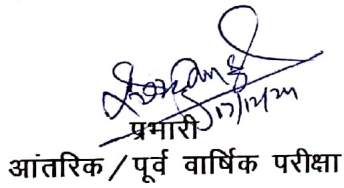 17/12/24
प्रभारी
आंतरिक / पूर्व वार्षिक परीक्षा